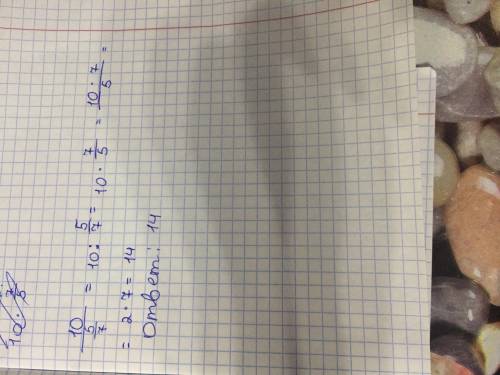 10 · 7/5
10/(5/7) = 10 : 5/7 = 10 · 7/5 = (10 · 7)/5 =
= 2 · 7 = 14
Ответ: 14